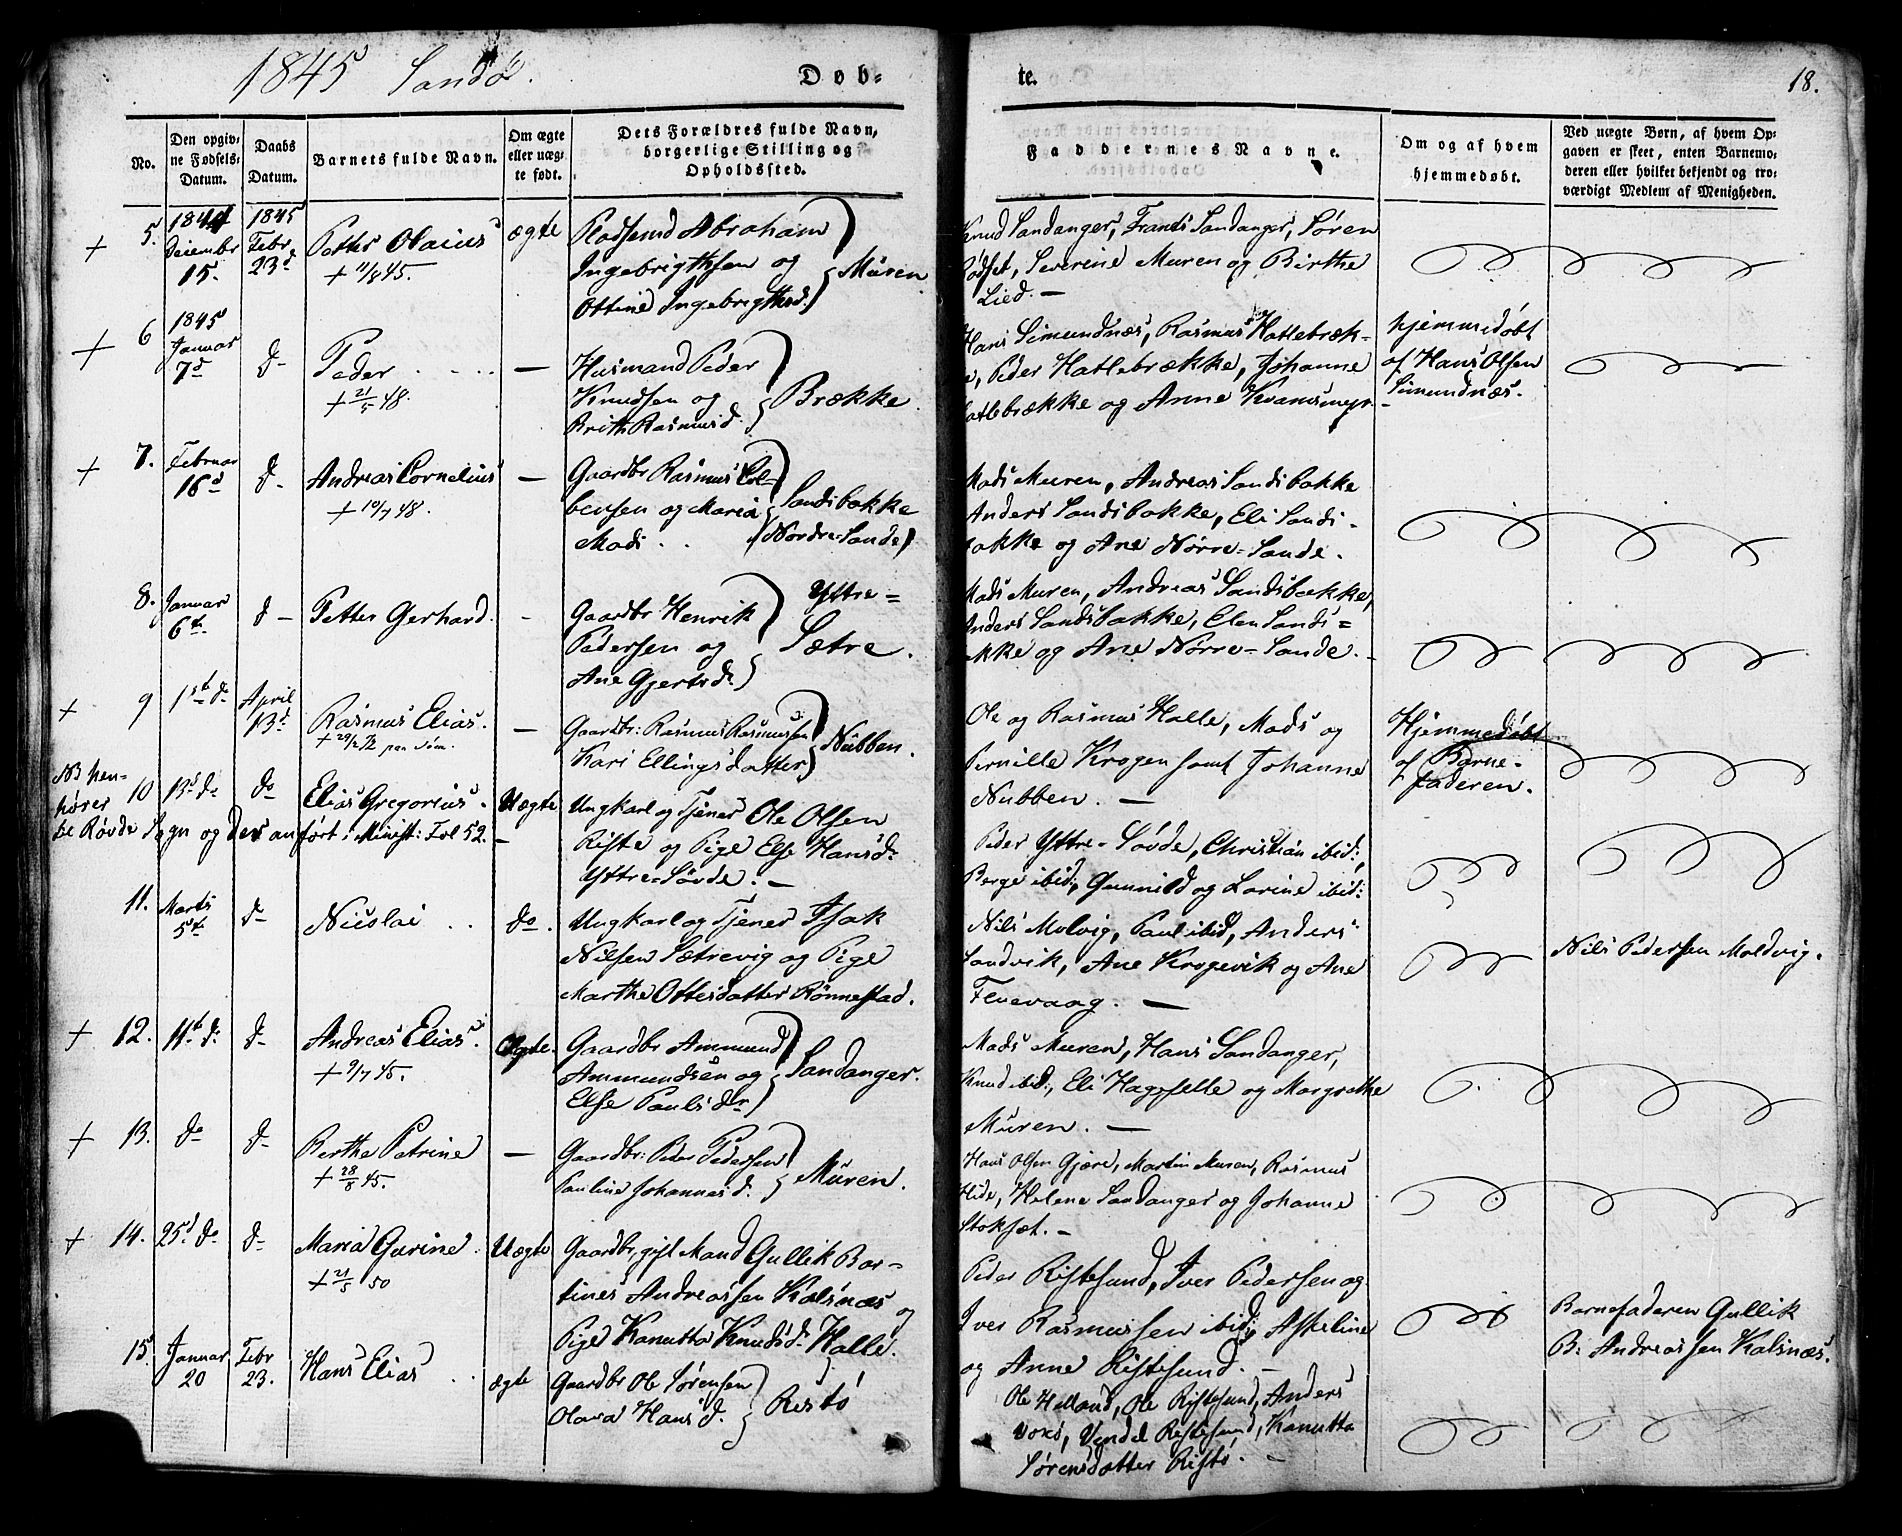 1845 Sandø. Døb-
te. 18.
No.
Den opgiv-
ne Fødsels-
Datum.
Daabs
Datum.
Barnets fulde Navn.
Om ægte
eller uæg-
te født.
Dets Forældres fulde Navn,
borgerlige Stilling og
Opholdssted.
Faddernes Navne.
Om og af hvem
hjemmedøbt.
Ved uægte Børn, af hvem Op-
gaven er skeet, enten Barnemo-
deren eller hvilket bekjendt og tro-
værdigt Medlem af Menigheden.
+ 5.
1844
Decembr
15.
1845
Febr
23d
Petter Olaius
+ 11/8 45.
ægte
Pladsemd Abraham
Ingebrigtsen og
Ottine Ingebrigtsd.
Muren
Knud Sandanger, Frands Sandanger, Søren
Rødset, Severine Muren og Birthe
Lied. —
+ 6
1845
Januar
7d
do
Peder
+ 21/5 48.
—
Husmand Peder
Knudsen og
Brith Rasmusd.
Brække.
Hans Simundnæs, Rasmus Hatlebræk-
e, Peder Hatlebrække, Johanne
atlebrække og Anne Kvamsmyr
hjemmedøbt
af Hans Olsen
Simundnæs.
+ 7.
Februar
16d
do
Andreas Cornelius
+ 10/7 48.
—
Gaardbr Rasmus Col-
bensen og Maria
Mads . .
Sandsbakke
(Nordre Sande)
Mads Muren, Andreas Sandsbakke
Anders Sandsbakke, Eli Sands-
bakke og Ane Nørre-Sande.
8.
Januar
6te
do —
Petter Gerhard.
-
Gaardbr Henrik
Pedersen og
Ane Gjertsdr
Yttre=
Sætre.
Mads Muren, Andreas Sandsbakke,
Anders Sandsbakke, Elen Sands=
akke og Ane Nørre-Sande.
+ 9
1ste do
April
13d
Rasmus Elias.
+ 29/2 72
—
Gaardbr: Rasmus Rasmussen
Kari Ellingsdatter
Nubben.
Ole og Rasmus Halle, Mads og
Pernille Krogen samt Johanne
Nubben. —
Hjemmedøbt
af Barne-
faderen.
NB hen-
hører 10
13d do
do
Elias Gregorius.
Uægte
til Røvde Sogn og der anført i Minist: Fol 52. —
Ungkarl og Tjener Ole Olsen
Riste og Pige Else Hansdr
Yttre-Søvde. —
Peder Yttre-Søvde, Christian ibid:,
Berge ibid:, Gunnild og Lorine ibid:
11.
Marts
5te
do
Nicolai . .
do.
Ungkarl og Tjener Isak
Nilsen Sætrevig og Pige
Marthe Ottesdatter Rönnestad.
Nils Molvig, Paul ibid, Anders
Sandvik, Ane Krogevik og Ane
Teuevaag. —
Nils Pedersen Moldvig.
+ 12.
11te do
do
Andreas Elias.
+ 9/7 45.
Ægte.
Gaardbr Ammund
Ammundsen og
Else Paulsdr
Sandanger.
Mads Muren, Hans Sandanger,
Knud ibid:, Eli Hagefelle og Margrethe
Muren. —
+ 13.
do
do
Berthe Petrine
+ 28/8 45.
—
Gaardbr: Peder Pedersen
Pauline Johannesd.
Muren.
Hans Olsen Gjære, Martin Muren, Rasmus
Hide, Helene Sandanger og Johanne
Stokset. —
+ 14.
25d do
do
Maria Gurine.
+ 21/5 50
Uægte
Gaardbr, gift Mand Gullik Bar-
tines Andreassen Kalsnæs og
Pige Kanutta Knudsdr Halle.
Peder Ristesund, Iver Pedersen og
Iver Rasmussen ibid:, Asteline
og Anne Ristesund. —
Barnefaderen Gullik
B: Andreassen Kalsnæs.
15.
Januar
20
Febr
23.
Hans Elias . .
ægte
Gaardbr Ole Sørensen
Olava Hansd.
Ristø
Ole Helland, Ole Ristesund, Anders
Voxø, Vendel Ristesund, Kanutta
Sørensdatter Ristø. —